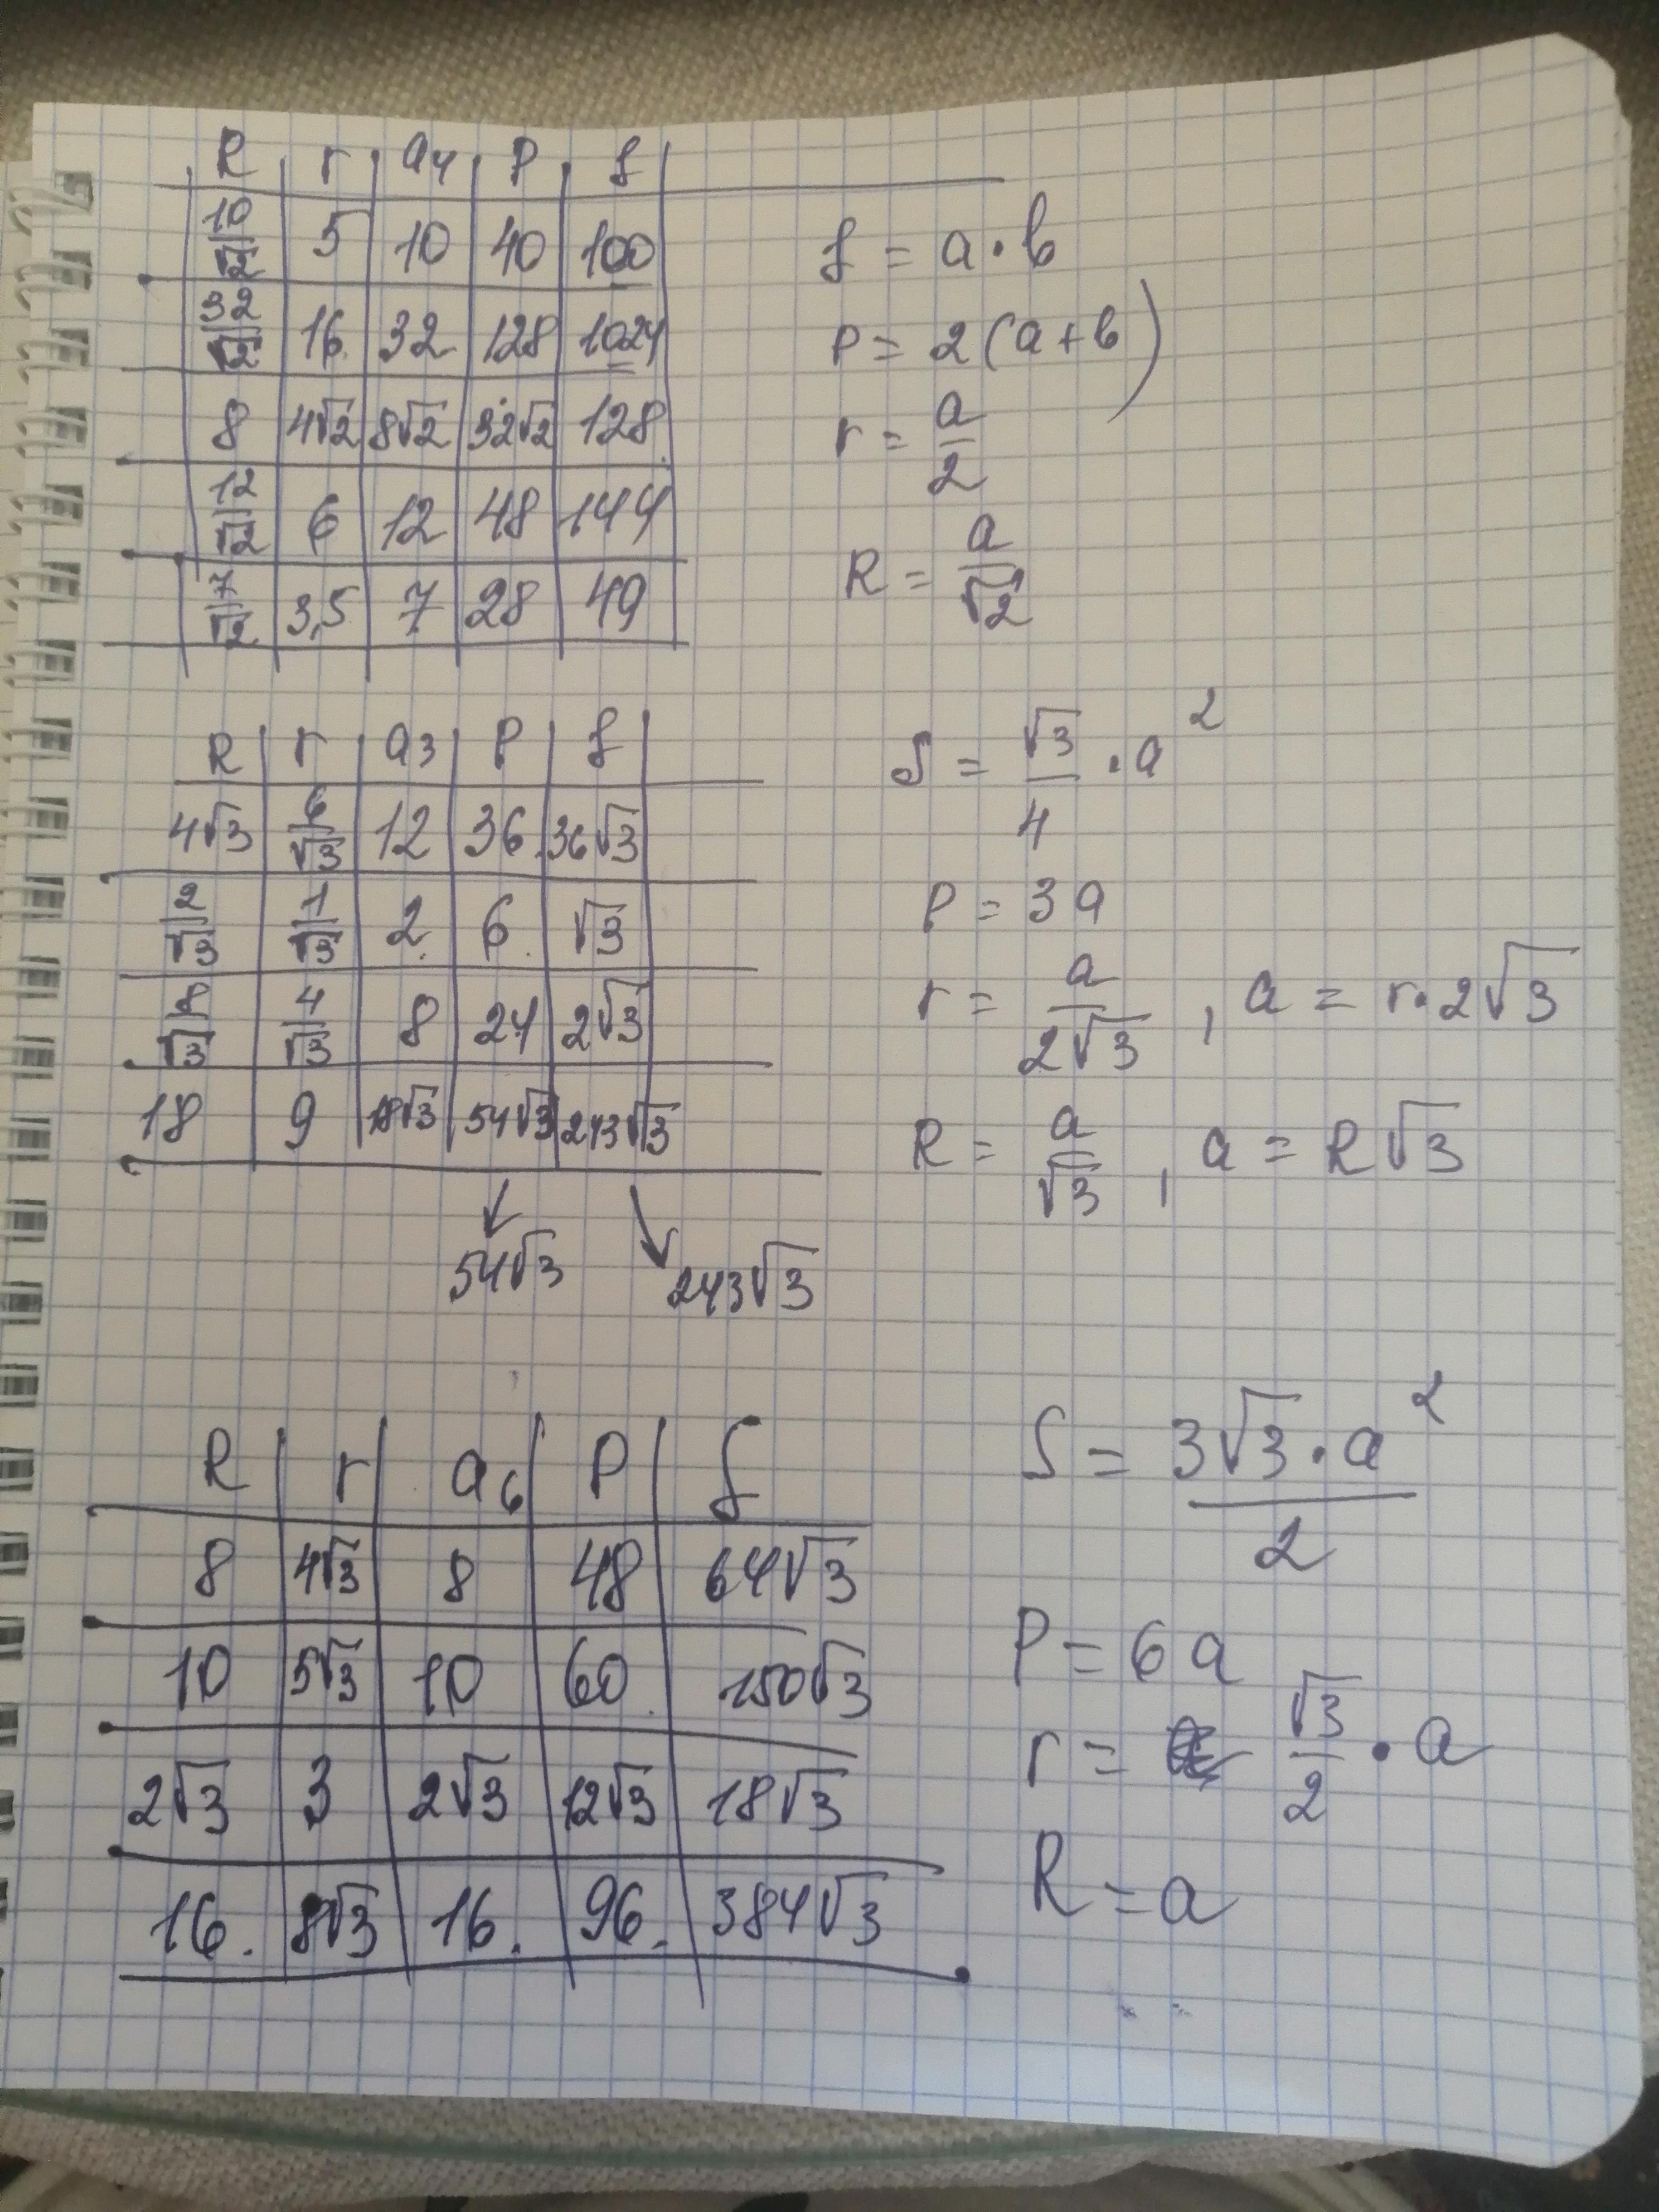 R | r | a4 | P | S
10/√2 | 5 | 10 | 40 | 100
32/√2 | 16. | 32 | 128 | 1024
8 | 4√2 | 8√2 | 32√2 | 128
12/√2 | 6 | 12 | 48 | 144
7/√2 | 3,5 | 7 | 28 | 49
S = a · b
P = 2(a+b)
r = a/2
R = a/√2
R | r | a3 | P | S
4√3 | 6/√3 | 12 | 36 | 36√3
2/√3 | 1/√3 | 2. | 6. | √3
8/√3 | 4/√3 | 8 | 24 | 2√3
18 | 9 | 18√3 | 54√3 | 243√3
54√3
243√3
S = √3/4 · a²
P = 3a
r = a/2√3 , a = r·2√3
R = a/√3 , a = R√3
R | r | a6 | P | S
8 | 4√3 | 8 | 48 | 64√3
10 | 5√3 | 10 | 60. | 150√3
2√3 | 3 | 2√3 | 12√3 | 18√3
16. | 8√3 | 16. | 96. | 384√3
S = 3√3·a²/2
P = 6a
r = √3/2 · a
R = a